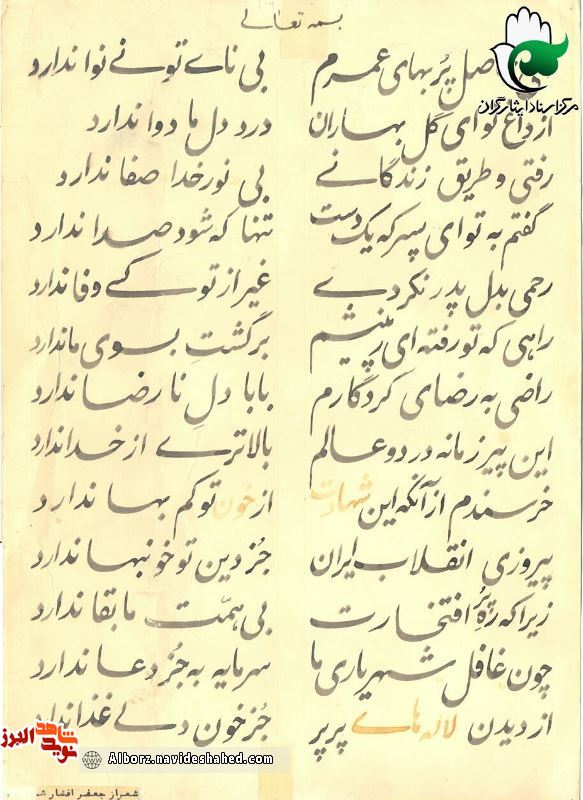 بسمه تعالی
مرکز اسناد ایثارگران
اصل پر بهای عمرم بی نای تو نی نوا ندارد
از داغ تو ای گل بهاران درد دل ما دوا ندارد
رفتی و طریق زندگانی بی نور خدا صفا ندارد
گفتم به تو ای پسر که یک دست تنها که شود صدا ندارد
رحمی بدل پدر نکردی غیر از تو کسی وفا ندارد
راهی که تو رفته ای برگشت بسوی ما ندارد
راضی به رضای کردگارم بابا دل نا رضا ندارد
این پیر زمانه در دو عالم بالاتری از خدا ندارد
خرسندم از آنکه این شهادت از خون تو کم بها ندارد
پیروزی انقلاب ایران جز دین تو خونبها ندارد
زیرا که ره پر افتخارت بی همت ما بقا ندارد
چون غافل شهریاری ما سرمایه به جز دعا ندارد
از دیدن لاله های پرپر جز خون دلی غذا ندارد
نوید شاهد البرز
Alborz.navideshahed.com
شعر از جعفر افشار